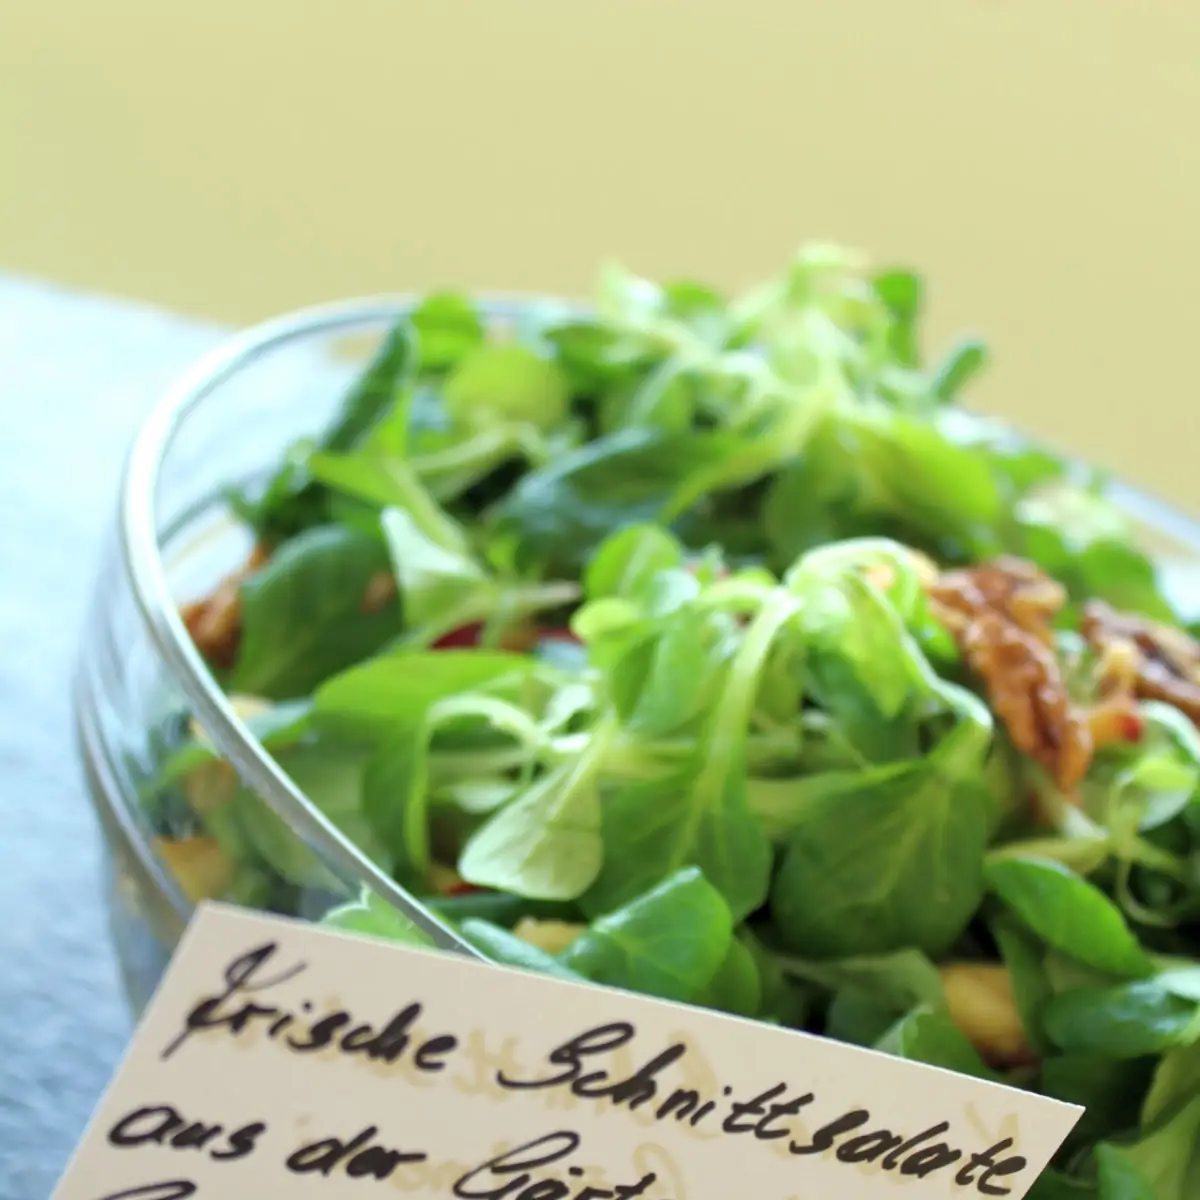 Frische Schnittsalate
aus der